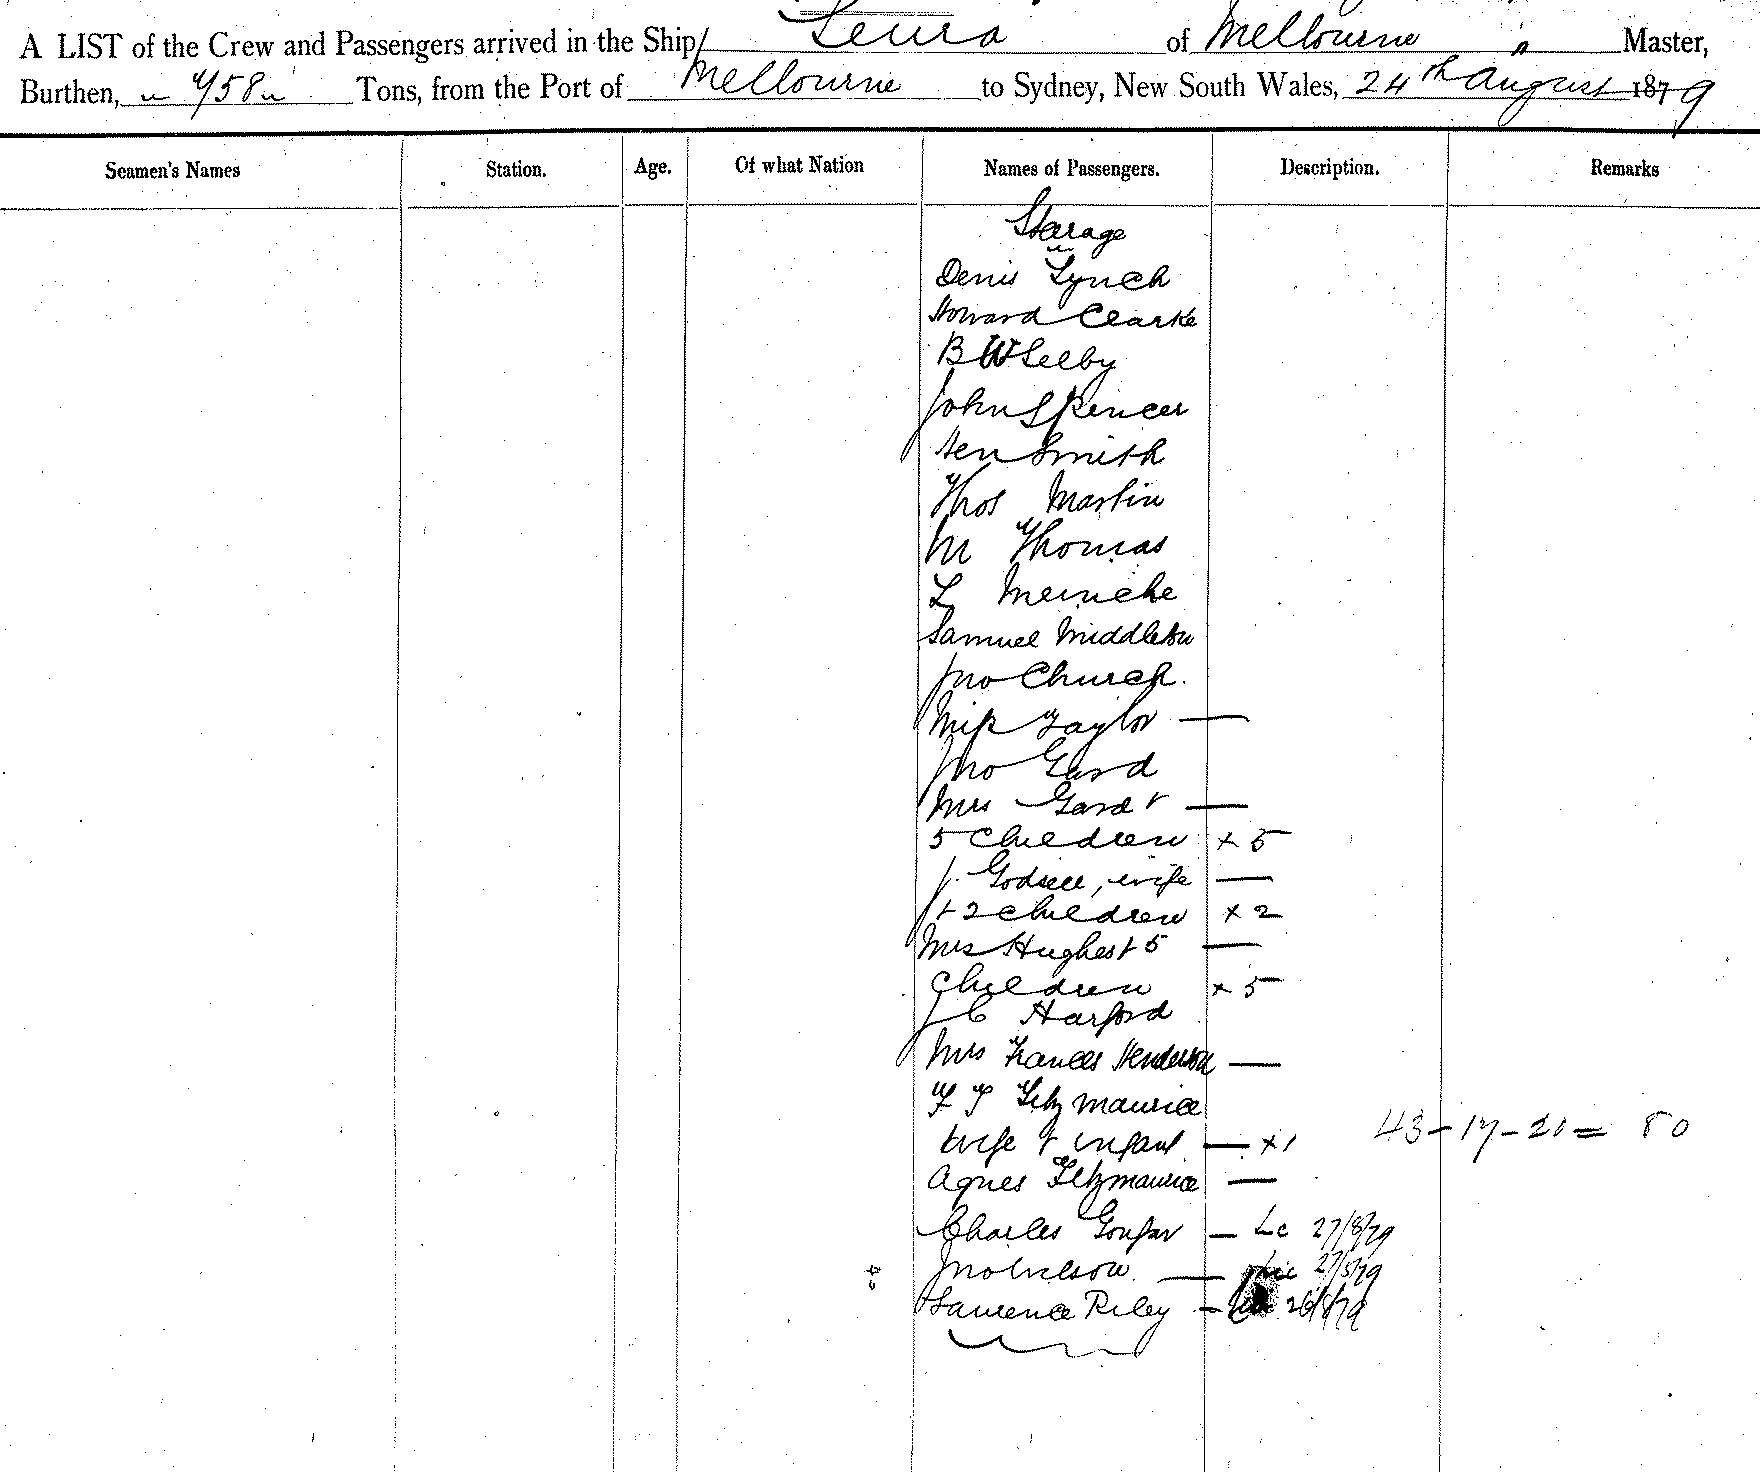 A LIST of the Crew and Passengers arrived in the Ship Leura of Melbourne " Master,
Burthen, 758 Tons, from the Port of Melbourne to Sydney, New South Wales, 24th August 1879
Seamen's Names Station. Age. Of what Nation Names of Passengers. Description. Remarks
Starage
Denis Lynch
Howard Clarke
B W Selby
John Spencer
Hen Smith
Thos Martin
M Thomas
L Meincke
Samuel Middleton
Jno Church.
Miss Taylor —
Jno Gard
Mrs Gard + —
5 Children × 5
J. Godsell, wife —
+ 2 children × 2
Mrs Hughes + 5 —
Children × 5
J C Harford
Mrs Frances Henderson —
F T Fitzmaurice
wife + infant — × 1
43 - 17 - 20 = 80
Agnes Fitzmaurice —
Charles — Lc 27/8/79
Jno Wilson — Lic 27/8/79
Laurence Riley — 26/8/79